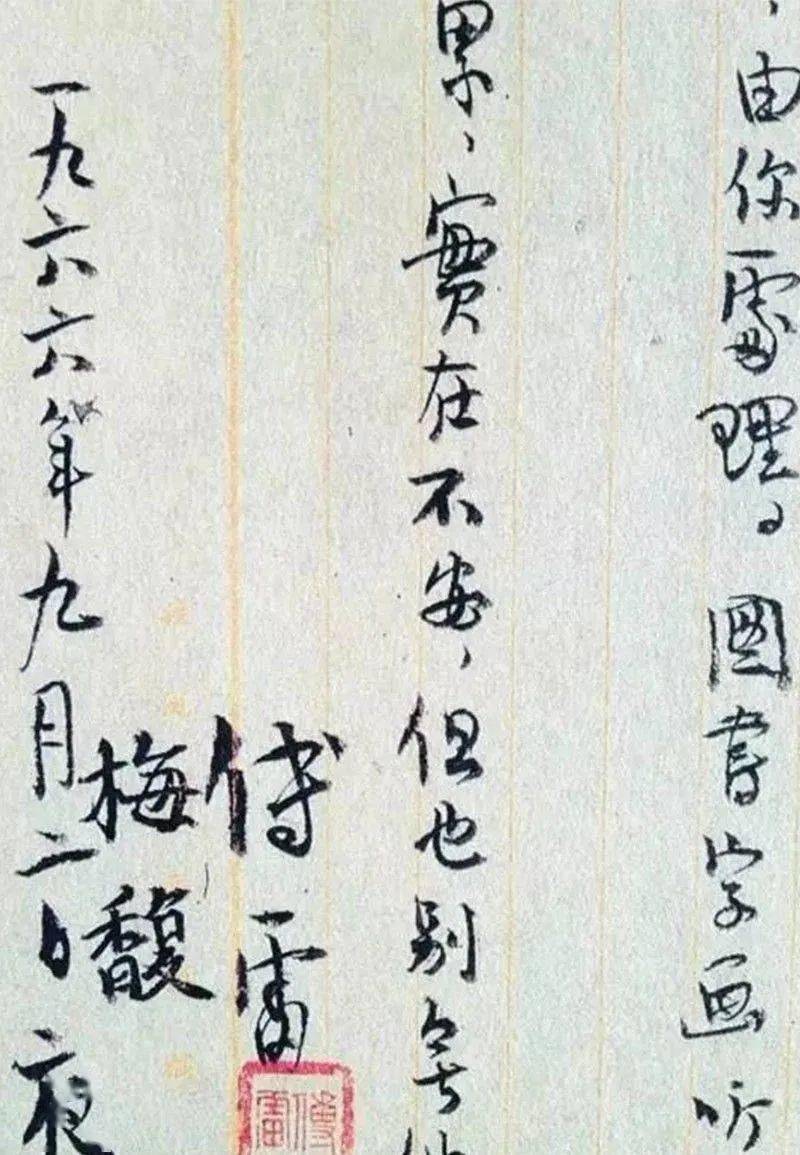 ，由你處理。圖書字画听
累，實在不安，但也别無他
傅雷
梅馥
一九六六年九月二日夜
傅雷